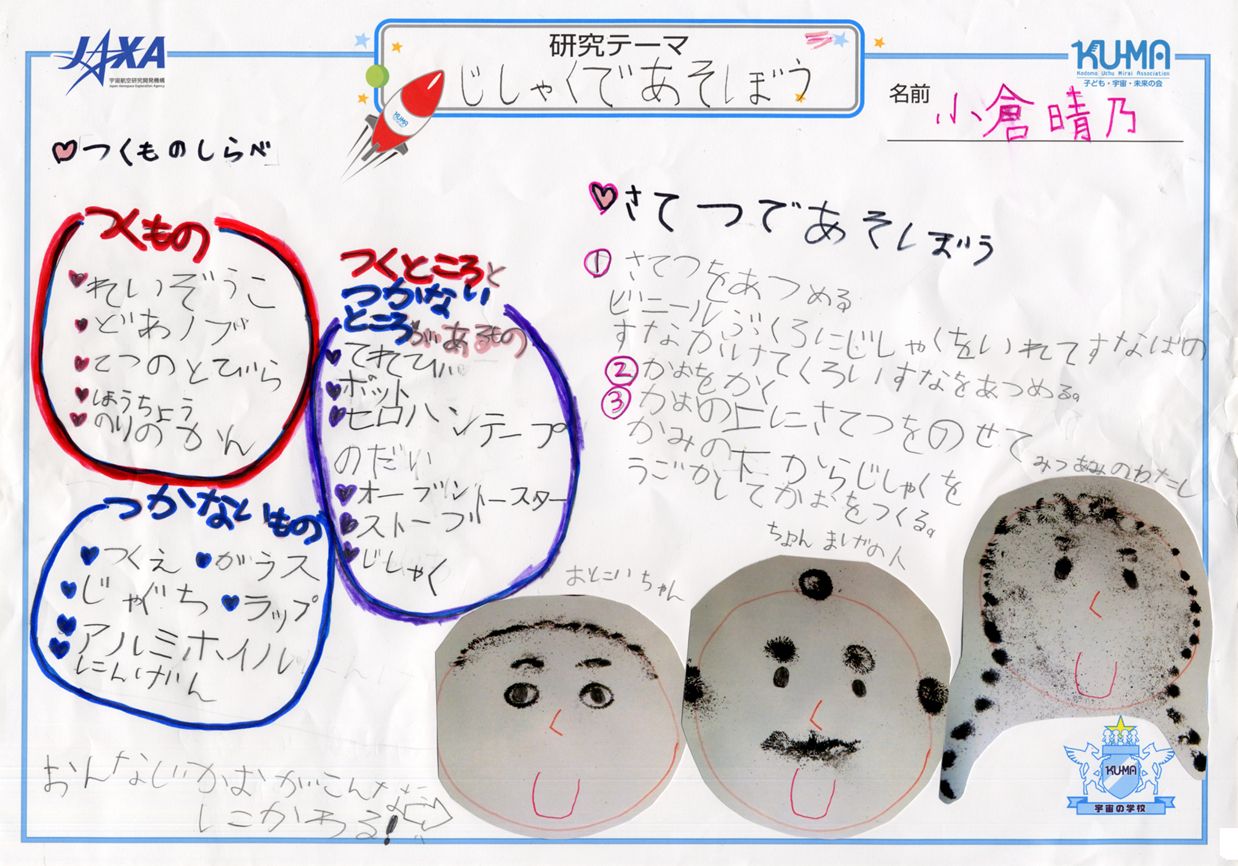 JAXA
宇宙航空研究開発機構
Japan Aerospace Exploration Agency
研究テーマ
じしゃくであそぼう
KUMA
KUMA
Kodomo Uchu Mirai Association
子ども・宇宙・未来の会
名前 小倉晴乃
つくものしらべ
つくもの
れいぞうこ
どあノブ
てつのとびら
ほうちょう
のりのかん
つくところと
つかない
ところがあるもの
てれび
ポット
セロハンテープ
のだい
オーブントースター
ストーブ
じしゃく
つかないもの
つくえ がラス
じゃぐち ラップ
アルミホイル
にんげん
さてつであそしぼう
① さてつをあつめる
ビニールぶくろにじしゃくをいれてすなばの
すなかけてくろいすなをあつめる。
② かおをかく
③ かおの上にさてつをのせて
かみの下からじしゃくを
うごかしてかおをつくる。
みつあみのわたし
ちょんまげの人
おとこいちゃん
おんなじかおがこんな
にかわる!
KUMA
宇宙の学校